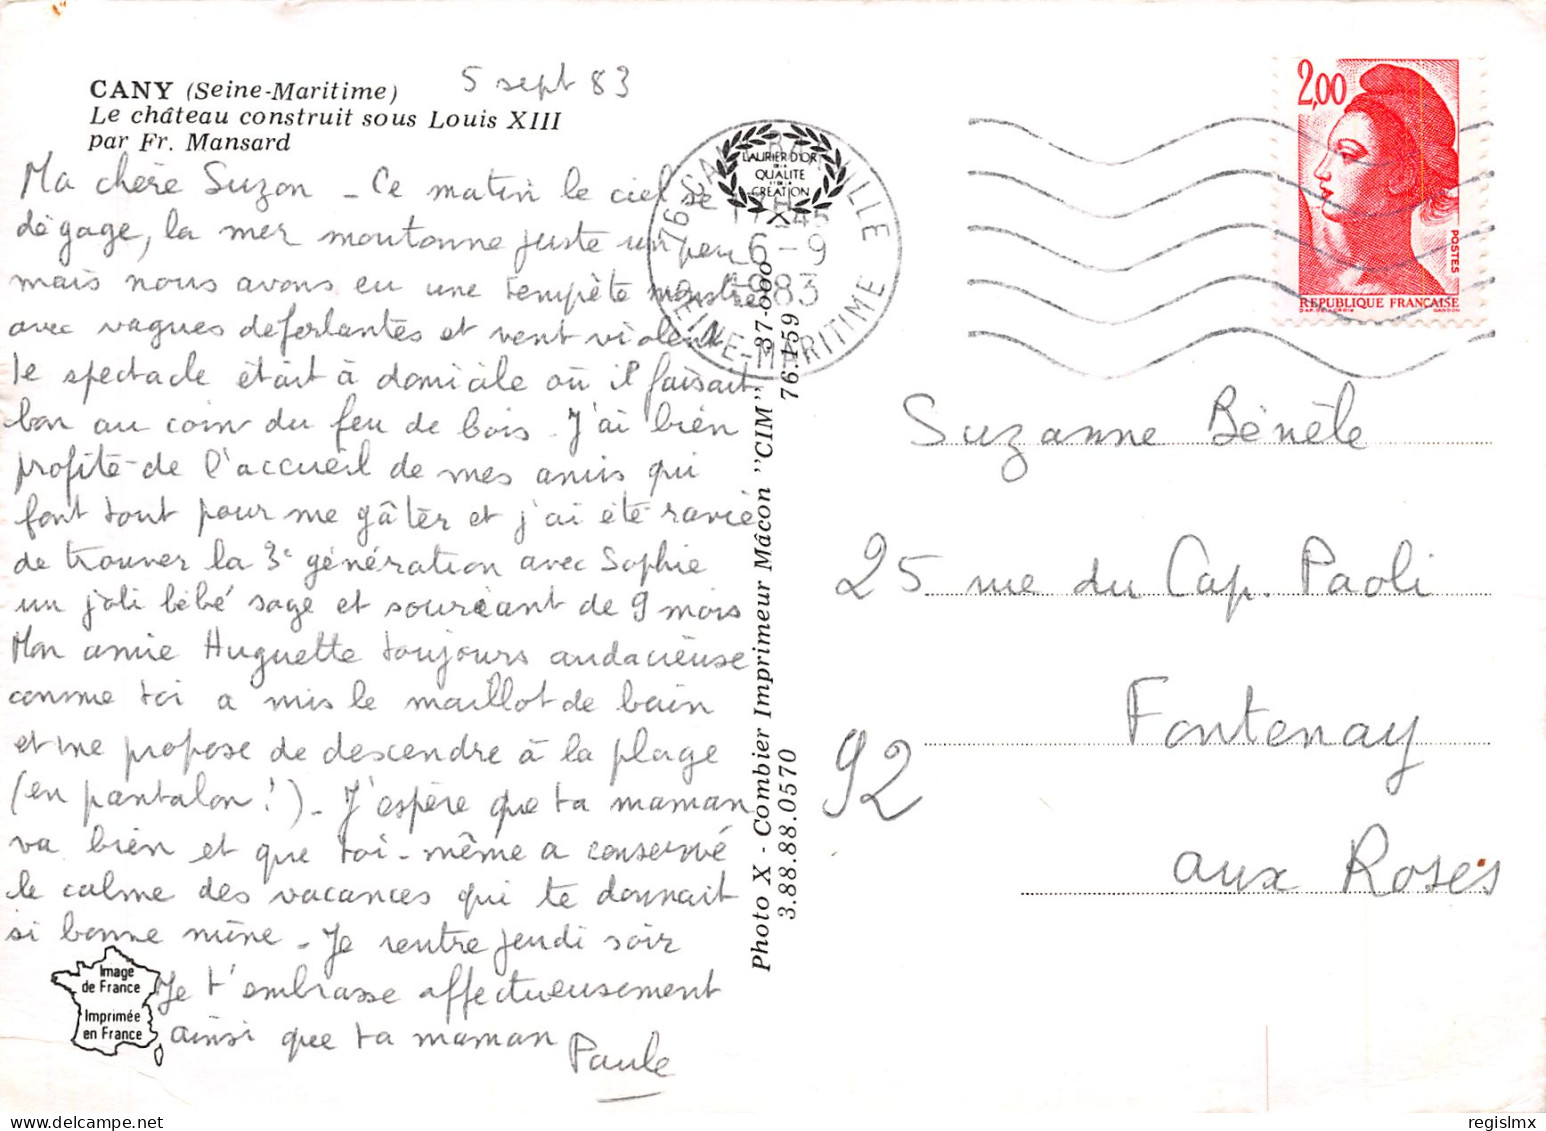 CANY (Seine-Maritime)
Le château construit sous Louis XIII
par Fr. Mansard
5 sept 83
Ma chère Suzon - Ce matin le ciel se
dégage, la mer moutonne juste un peu
mais nous avons eu une tempête monstre
avec vagues déferlantes et vent violent
le spectacle était à domicile où il faisait
bon au coin du feu de bois. J'ai bien
profité de l'accueil de mes amis qui
font tout pour me gâter et j'ai été ravie
de trouver la 3e génération avec Sophie
un joli bébé sage et souriant de 9 mois
Mon amie Huguette toujours audacieuse
comme toi a mis le maillot de bain
et me propose de descendre à la plage
(en pantalon !) - J'espère que ta maman
va bien et que toi-même a conservé
le calme des vacances qui te donnait
si bonne mine - Je rentre jeudi soir
Je t'embrasse affectueusement
ainsi que ta maman
Paule
Image
de France
Imprimée
en France
Photo X - Combier Imprimeur Mâcon "CIM" 37-000
3.88.88.0570 76.159
LAURIER D'OR
DE LA
QUALITE
ET DE LA
CREATION
76 CANY BARVILLE
17H45
6-9
1983
SEINE-MARITIME
2,00
POSTES
REPUBLIQUE FRANÇAISE
DAP. DELACROIX GANDON
Suzanne Bénète
25 rue du Cap. Paoli
Fontenay
92
aux Roses
delcampe.net
regislmx